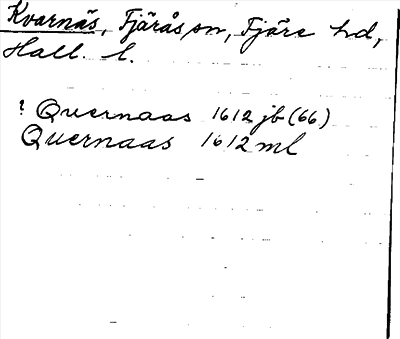 Kvarnäs, Fjärås sn, Fjäre hd,
Hall. l.
? Quernaas 1612 jb (66)
Quernaas 1612 ml